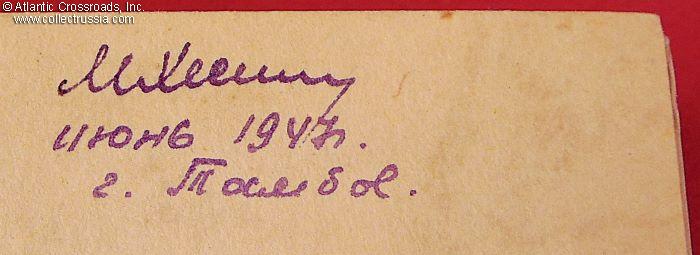 © Atlantic Crossroads, Inc.
www.collectrussia.com
июнь 1947г.
г. Тамбов.